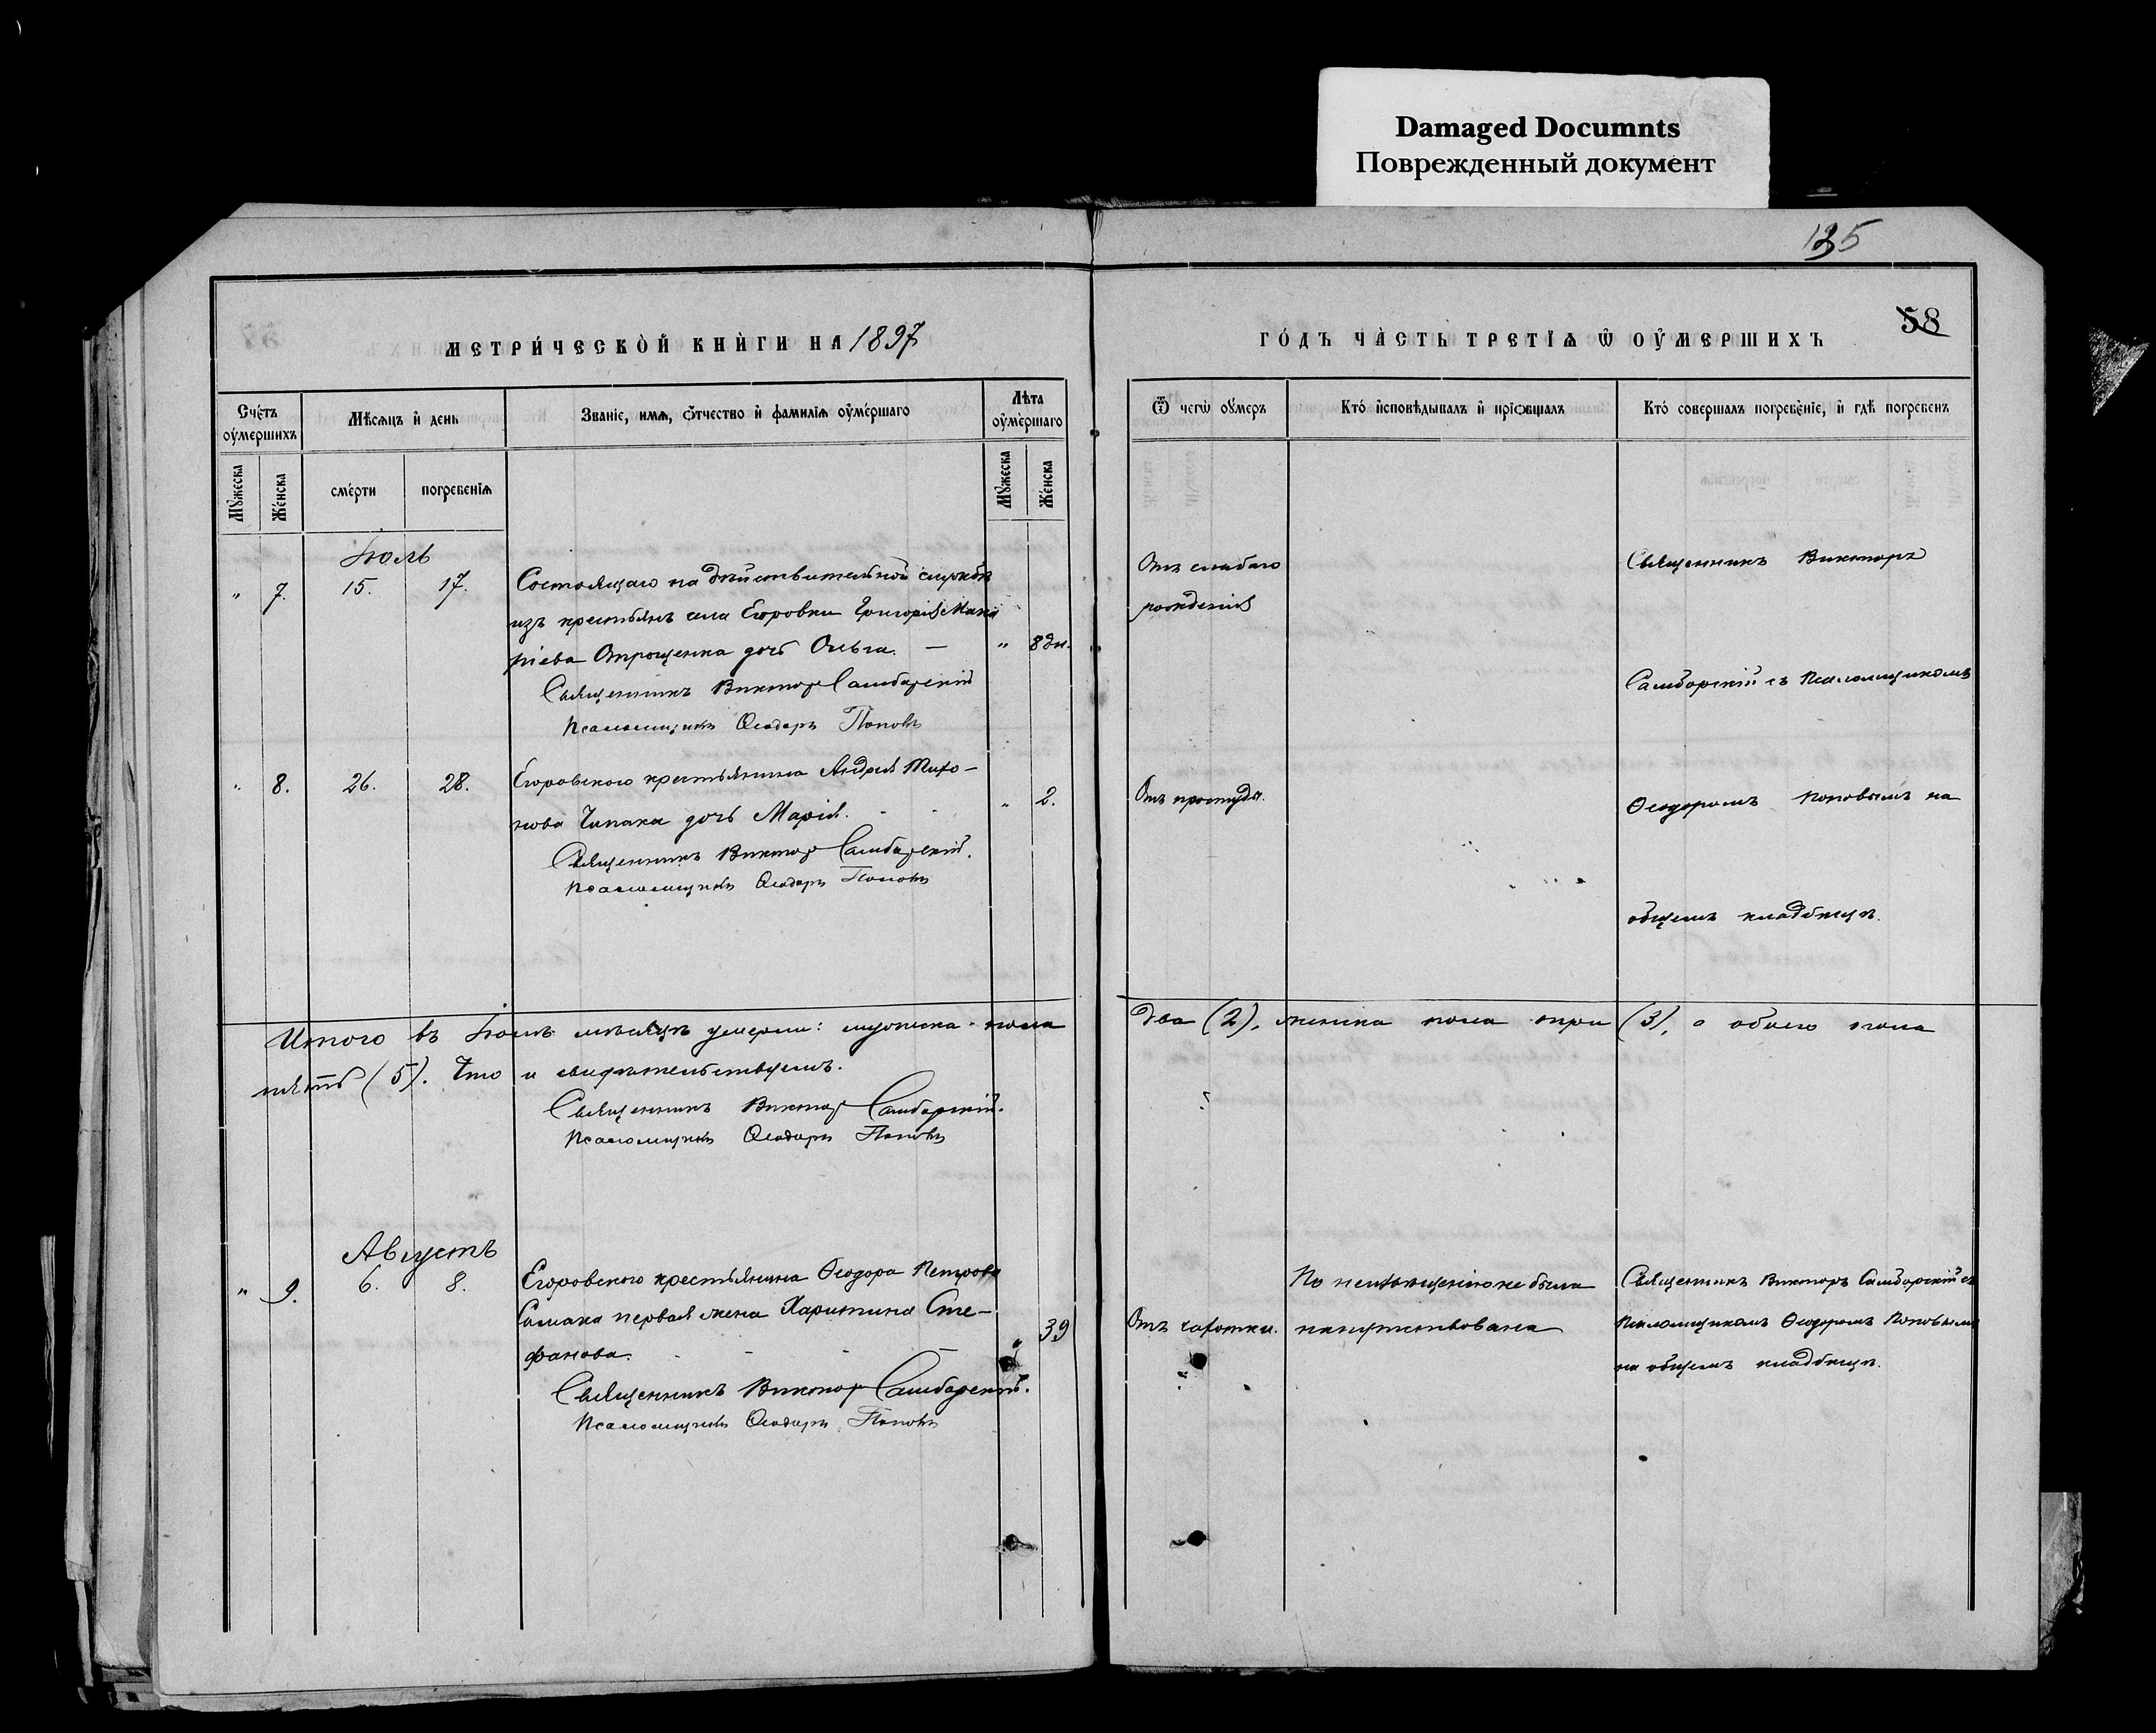 Damaged Documnts
Поврежденный документ
135
58
МЕТРИ́ЧЕСКОЙ КНЍГИ НА 1897
ГО́ДЪ ЧА̀СТЬ ТРЕТІѦ Ѿ ОУ҆МЕРШИХЪ
Сче́тъ оу҆ме́ршихъ
Мѣ́сѧцъ и҆ день
Зва́ніе, имѧ, ѻ҆́тчество и҆ фами́лїѧ оу҆ме́ршаго
Лѣ́та оу҆ме́ршаго
Ѿ чегѡ̀ оу҆́меръ
Кто́ и҆сповѣ́дывалъ и҆ прїѻбща́лъ
Кто́ соверша́лъ погребе́нїе, и҆ гдѣ̀ погребе́нъ
Мꙋ́жеска
Же́нска
сме́рти
погребе́нїѧ
Мꙋ́жеска
Же́нска
Іюль
" 7. 15. 17. Состоящаго на дѣйствительной службѣ
изъ крестьянъ села Егоровки Григорія Мака
ріева Отрощенка дочь Ольга. — " 8 дн.
Священникъ Викторъ Самборскій
Псаломщикъ Ѳеодоръ Поповъ
Отъ слабаго
рожденія
Священникъ Викторъ
Самборскій съ Псаломщикомъ
" 8. 26. 28. Егоровского крестьянина Андрея Тихо-
нова Чипака дочь Марія. " 2.
Священникъ Викторъ Самборскій.
Псаломщикъ Ѳеодоръ Поповъ
Отъ простуды.
Ѳеодоромъ Поповымъ на
общемъ кладбищѣ.
Итого въ Іюлѣ мѣсяцѣ умерли: мужеска пола два (2), женска пола три (3), а обоего пола
пять (5). Что и свидѣтельствуемъ.
Священникъ Викторъ Самборскій.
Псаломщикъ Ѳеодоръ Поповъ
Августъ
" 9. 6. 8. Егоровского крестьянина Ѳеодора Петрова
Симака первая жена Харитина Сте-
фанова. " 39
Священникъ Викторъ Самборскій.
Псаломщикъ Ѳеодоръ Поповъ
Отъ чахотки.
По неизвѣщенію не была
напутствована
Священникъ Викторъ Самборскій съ
Псаломщикомъ Ѳеодоромъ Поповымъ
на общемъ кладбищѣ.